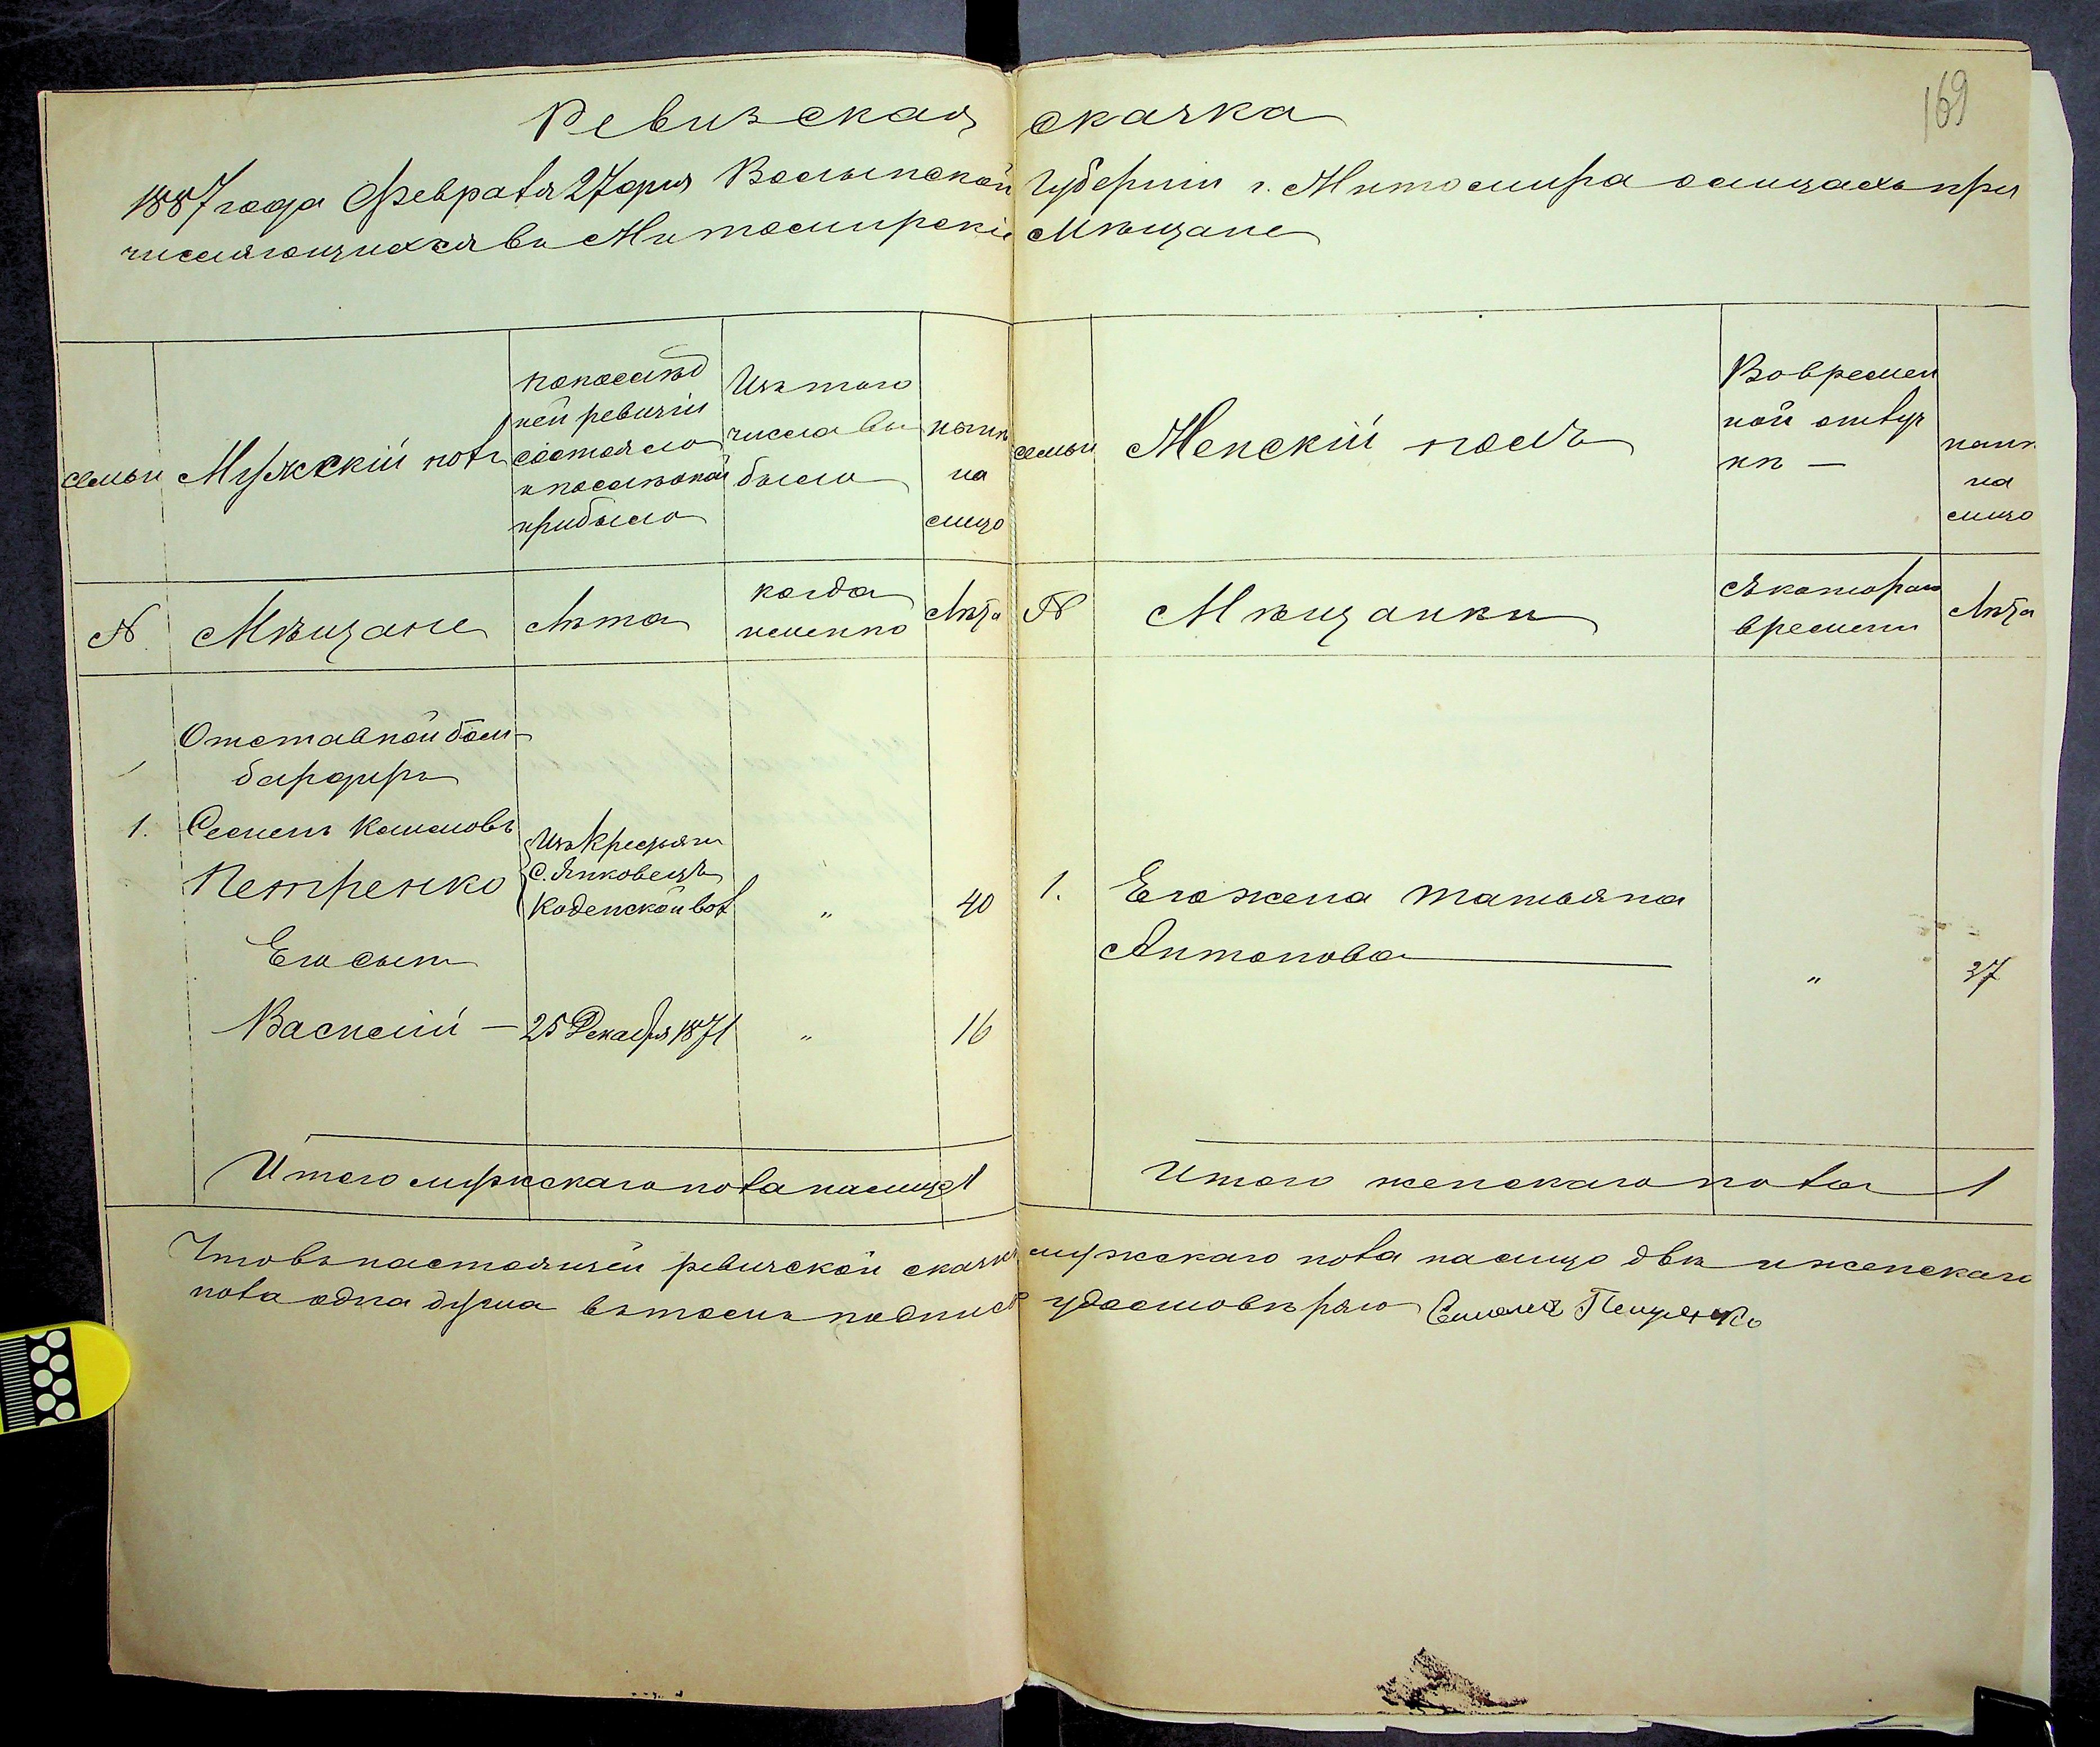 169
Ревизская сказка
1887 года Февраля 27 дня Волынской Губернии г. Житомира о лицахъ при
числяющихся въ Житомирскіе Мѣщане
семьи
Мужескій полъ
по послѣд
ней ревизіи
состояло
и послѣ оной
прибыло
Изъ того
числа вы
было
нынѣ
на
лицо
семьи
Женскій полъ
Во времен
ной отлуч
кѣ —
нынѣ
на
лицо
№
Мѣщане
Лѣта
когда
именно
Лѣта
№
Мѣщанки
Съ котораго
времени
Лѣта
Отставной бом-
бардиръ
1. Семенъ Климовъ
Петренко
Изъ Крестьянъ
с. Янковецъ
Коденской вол
" 40
Его сынъ
Василій — 25 Декабря 1871 " 16
1. Его жена Татьяна
Антонова " 37
Итого мужскаго пола на лицо 1
Итого женскаго пола 1
Что въ настоящей ревизской сказкѣ мужскаго пола на лицо двѣ и женскаго
пола одна душа въ томъ подписью удостовѣряю Симонъ Петренко